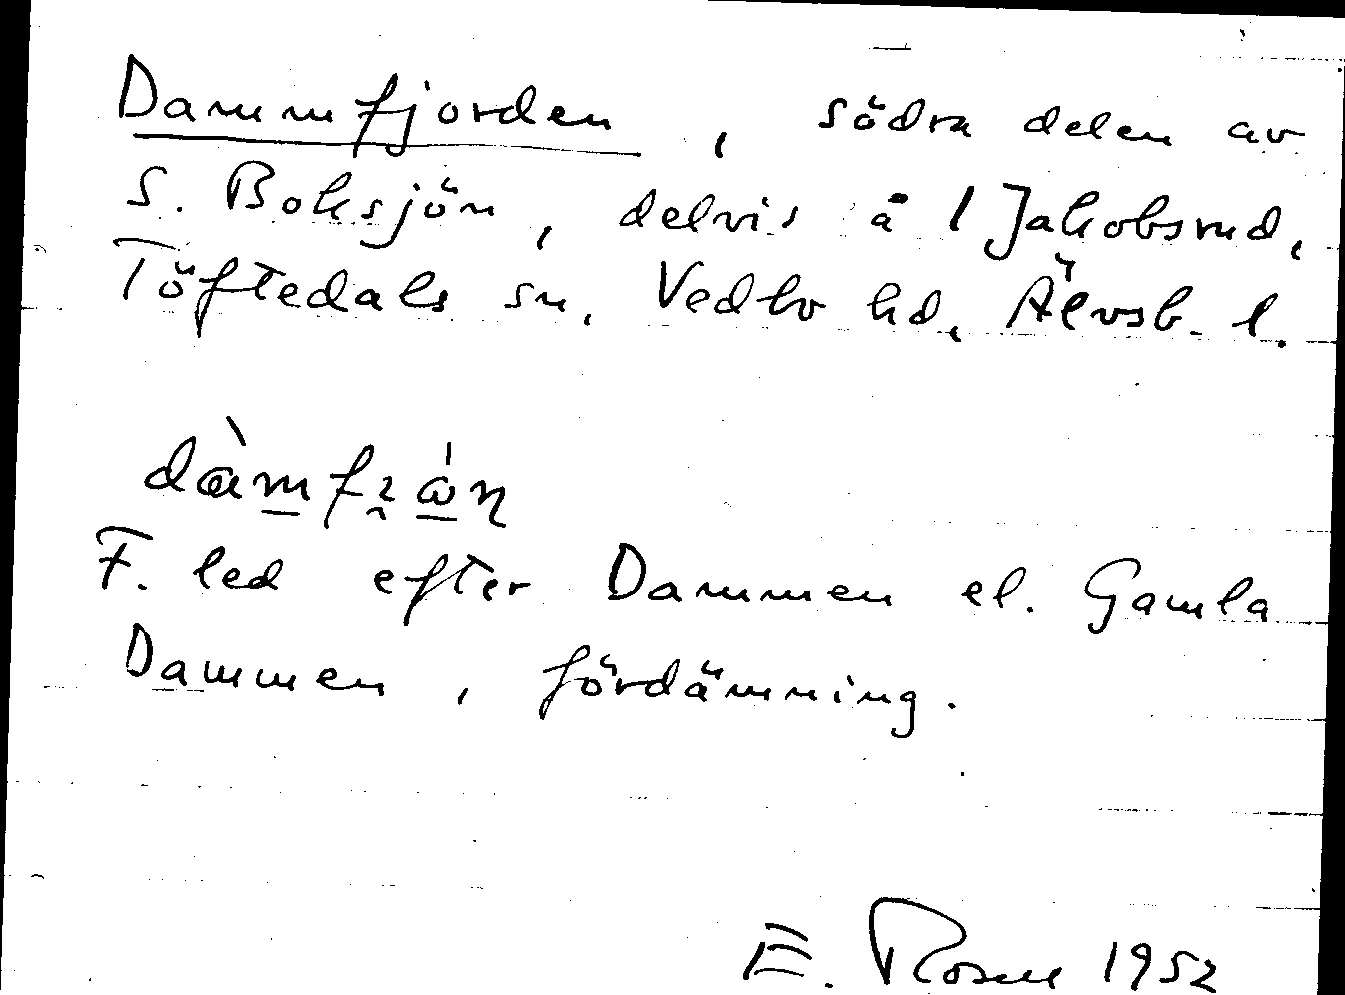 Dammfjorden, södra delen av
S. Boksjön, delvis å 1 Jakobsrud,
Töftedals sn, Vedbo hd, Älvsb. l.
F. led efter Dammen el. Gamla
Dammen, fördämning.
E. Rosen 1952